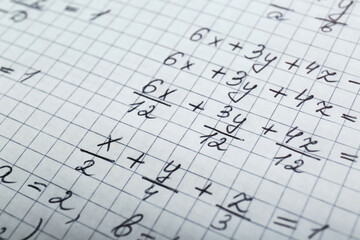 = 1
y
a b
6x + 3y + 4z -
6x + 3y + 4z =
= 1
6x/12 + 3y/12 + 4z/12 =
x/2 + y/4 + z/3 = 1
a = 2,
b =